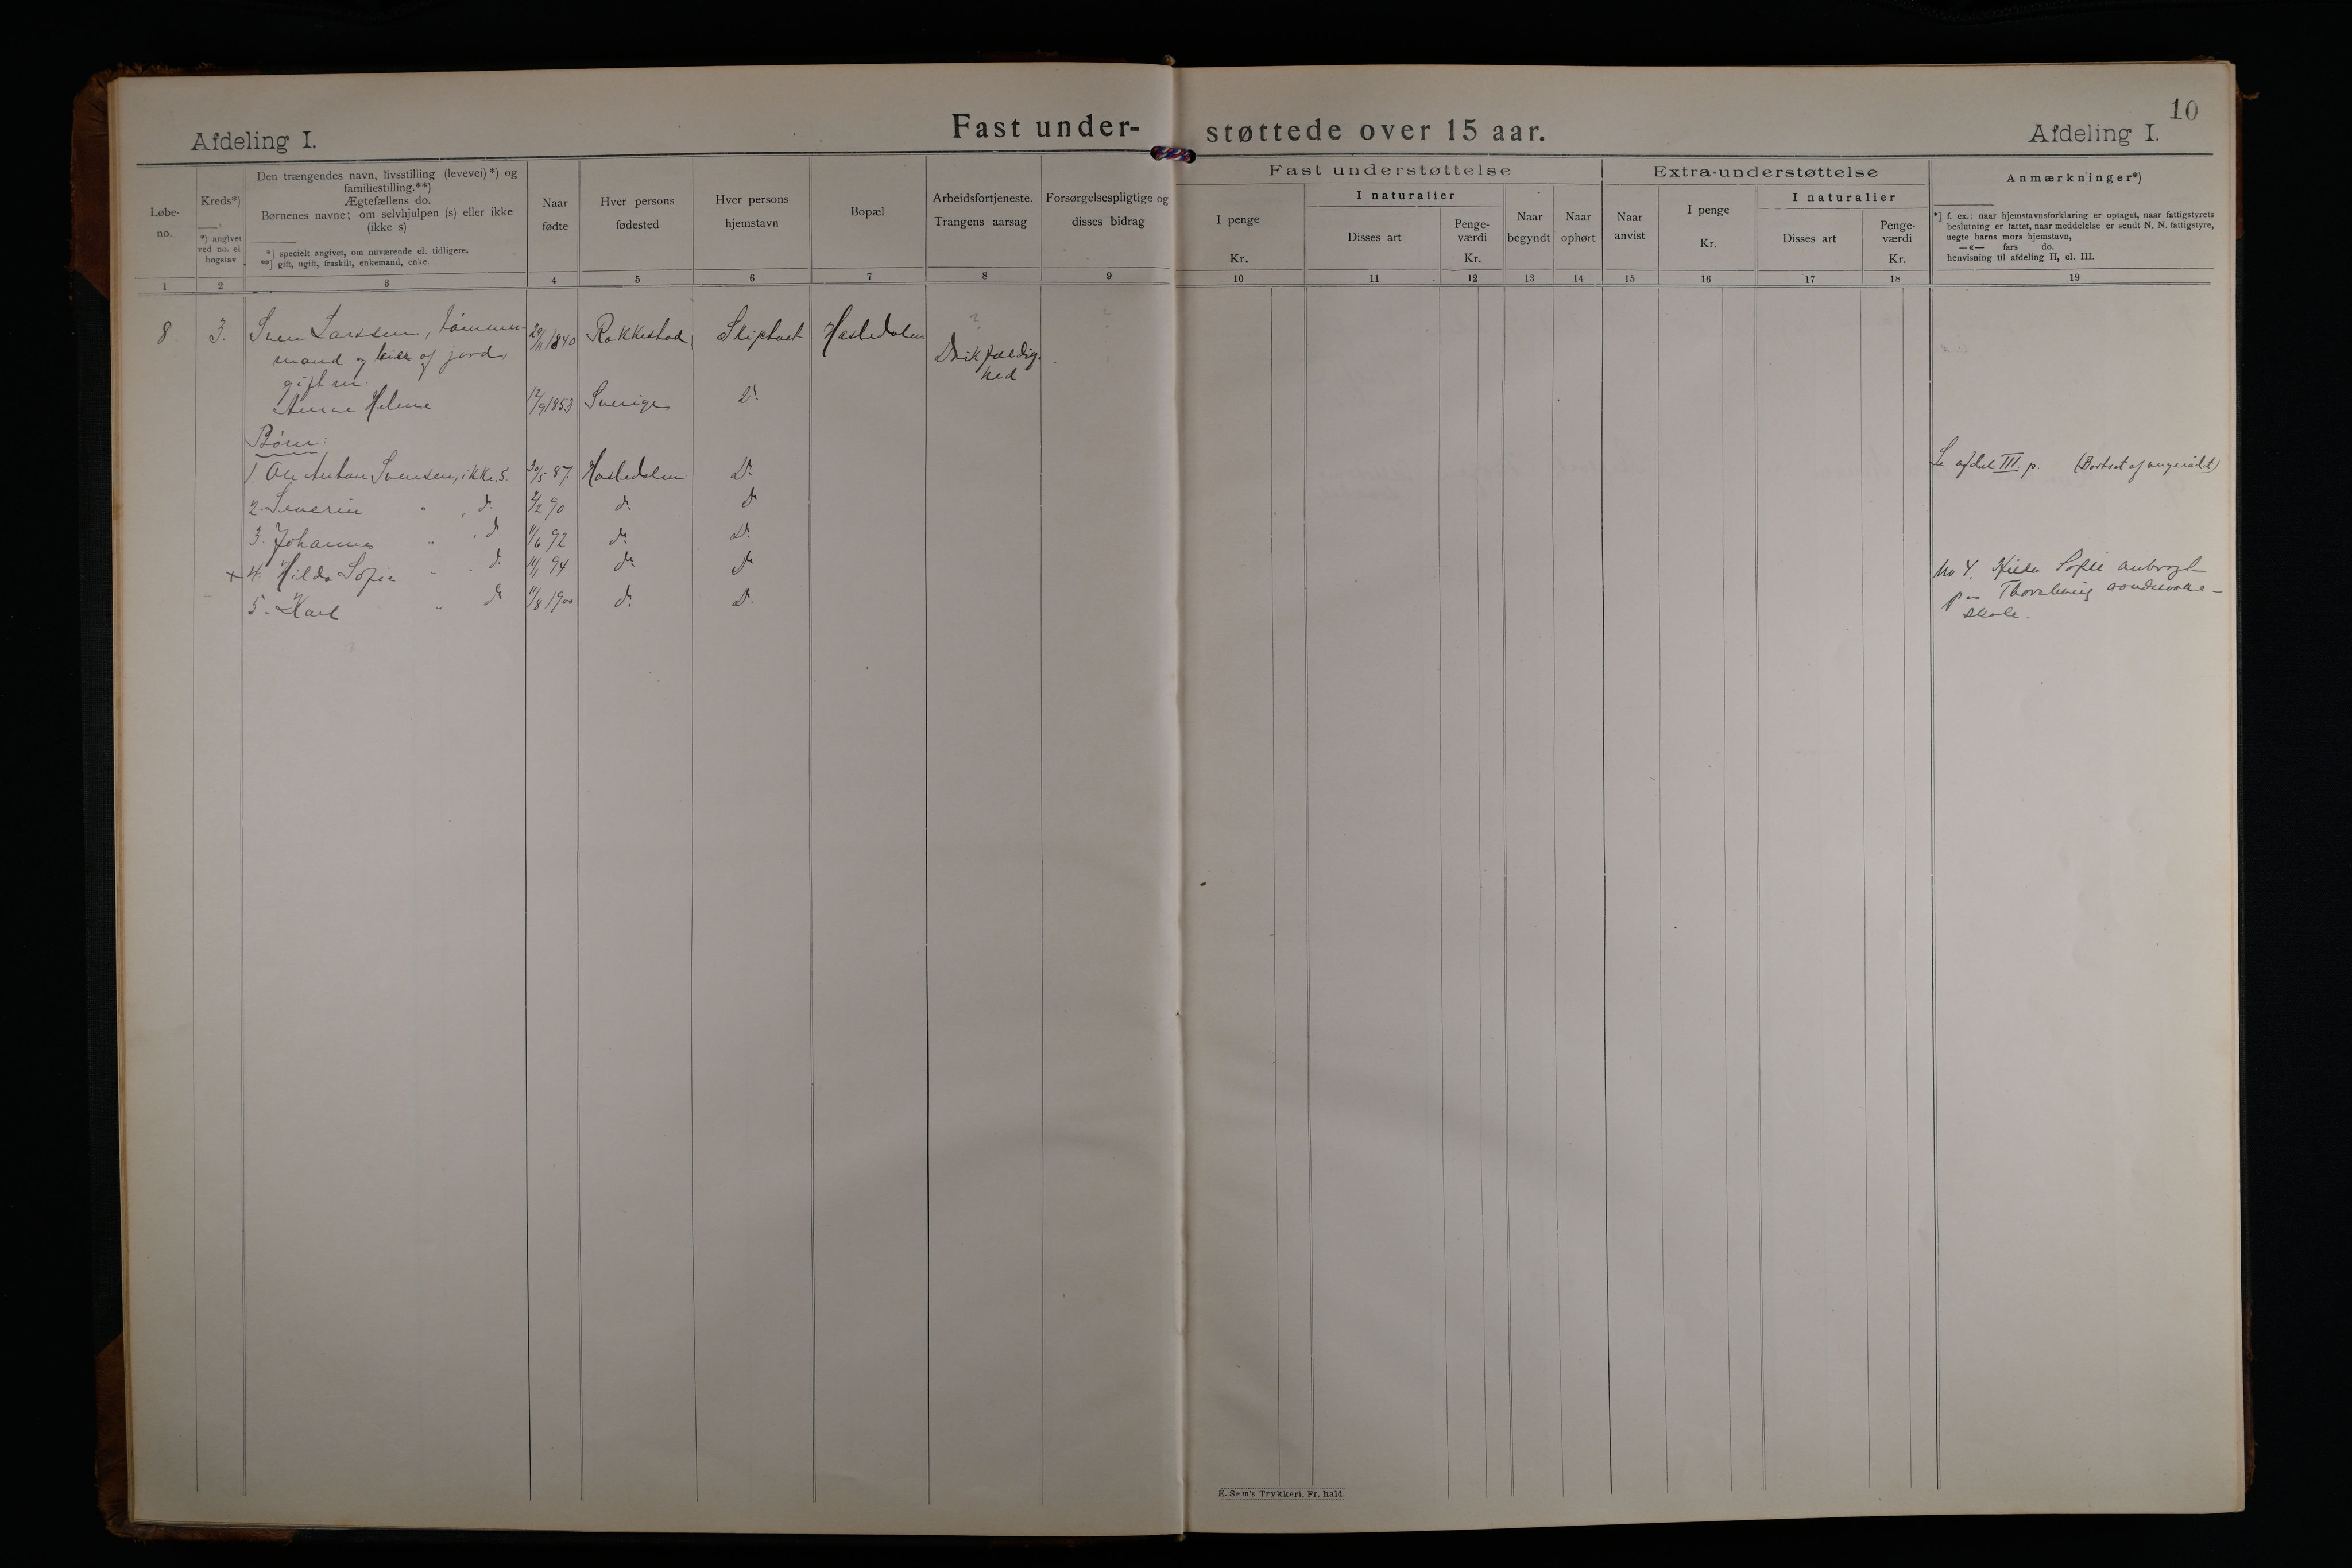 Afdeling I.
Fast under-
støttede over 15 aar.
Afdeling I.
10
Løbe-
no.
Kreds*)
*) angivet
ved no. el.
bogstav
Den trængendes navn, livsstilling (levevei)*) og
familiestilling.**)
Ægtefællens do.
Børnenes navne; om selvhjulpen (s) eller ikke
(ikke s)
*) specielt angivet, om nuværende el. tidligere.
**) gift, ugift, fraskilt, enkemand, enke.
Naar
fødte
Hver persons
fødested
Hver persons
hjemstavn
Bopæl
Arbeidsfortjeneste.
Trangens aarsag
Forsørgelsespligtige og
disses bidrag
Fast understøttelse
I penge
Kr.
I naturalier
Disses art
Penge-
værdi
Kr.
Naar
begyndt
Naar
ophørt
Extra-understøttelse
Naar
anvist
I penge
Kr.
I naturalier
Disses art
Penge-
værdi
Kr.
Anmærkninger*)
*] f. ex.: naar hjemstavnsforklaring er optaget, naar fattigstyrets
beslutning er fattet, naar meddelelse er sendt N. N. fattigstyre,
uegte barns mors hjemstavn,
—«— fars do.
henvisning til afdeling II, el. III.
1 2 3 4 5 6 7 8 9 10 11 12 13 14 15 16 17 18 19
8. 3. Sven Larssen, tømmer- 20/11 1840 Rakkestad Skiptvet Hasledalen
mand og eier af jord, Drikfældig-
hed
gift m.
Anne Helene 12/9 1853 Sverige Do.
Børn:
1. Ole Anton Svensen, ikke s. 30/5 87 Hasledalen Do. Se afdel. III p. (Bortsat af vergerådet)
2. Severin " , do. 2/2 90 do. do
3. Johannes " , do 11/6 92 do. Do.
+ 4. Hilda Sofie " . do. 11/1 94 do. do No 4. Hilda Sofie anbragt
paa Thorshaug aandssvage-
skole.
5. Karl " do 11/8 1900 do. Do.
E. Sem's Trykkeri, Fr.hald